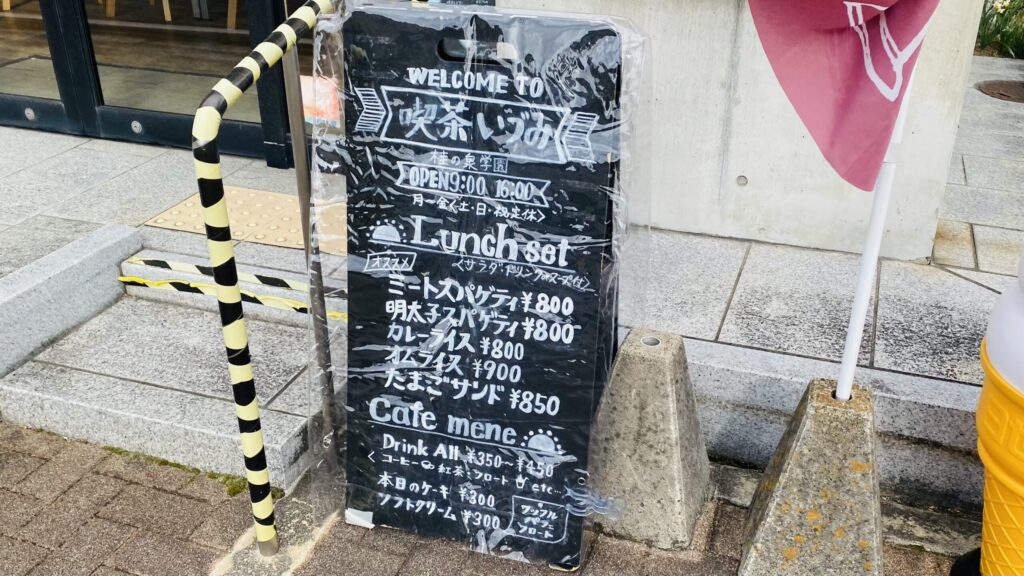 WELCOME TO
喫茶いづみ
桂の泉学園
OPEN 9:00 16:00
月〜金<土・日・祝定休>
Lunch set
オススメ
<サラダ・ドリンクorスープ付>
ミートスパゲティ ¥800
明太子スパゲティ ¥800
カレーライス ¥800
オムライス ¥900
たまごサンド ¥850
Cafe mene
Drink All ¥350〜¥450
<コーヒー 紅茶 フロート etc…
本日のケーキ ¥300
ソフトクリーム ¥300
ワッフル
フロート